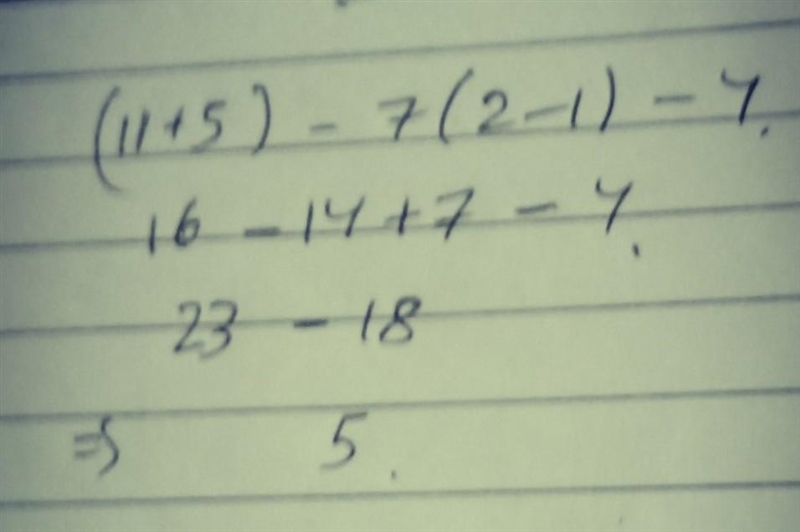 (11+5) - 7(2-1) - 4.
16 - 14+7 - 4.
23 - 18
⇒ 5.